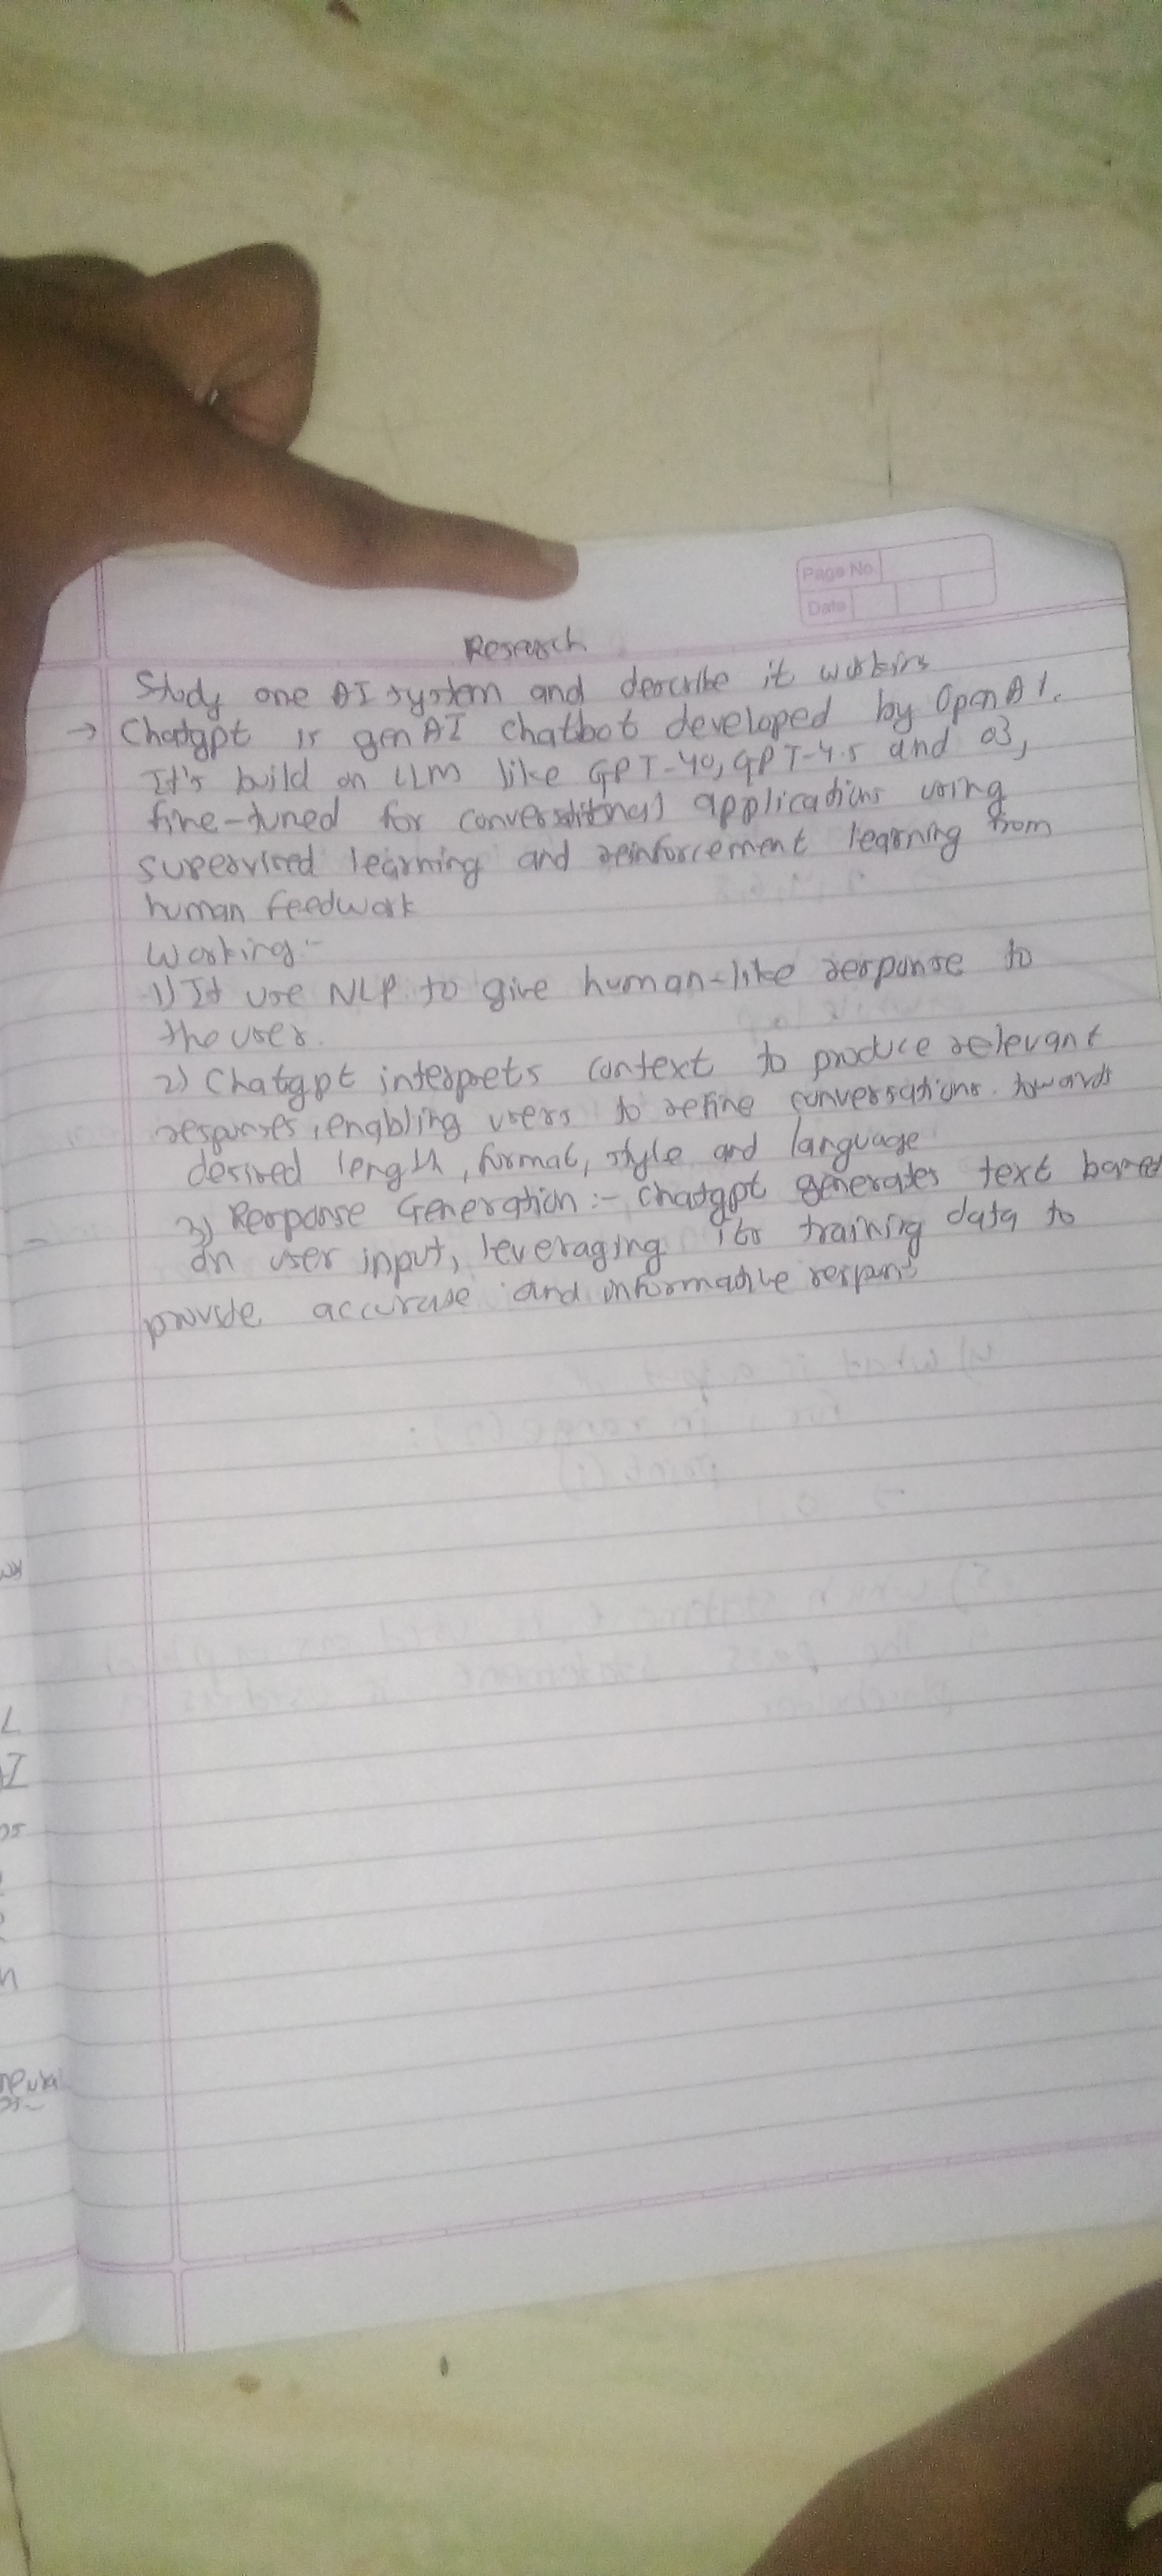 Page No.
Date
Research
Study one AI system and describe it working
→ Chatgpt is gen AI chatbot developed by Open AI.
It's build on LLM like GPT-4o, GPT-4.5 and o3,
fine-tuned for conversational applications using
supervised learning and reinforcement learning from
human feedwork
Working:-
1) It use NLP to give human-like response to
the user.
2) Chatgpt interprets context to produce relevant
responses, enabling users to refine conversations towards
desired length, format, style and language
3) Response Generation :- Chatgpt generates text based
on user input, leveraging its training data to
provide accurate and informative respons